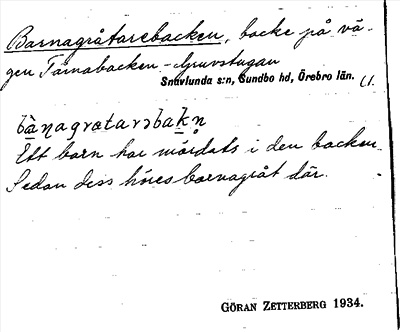 Barnagråtarebacken, backe på vä-
gen Tärnabacken - Gruvstugan
Snavlunda s:n, Sundbo hd, Örebro län. U.
bà̱ŋagratarəba̱kn̥
Ett barn har mördats i den backen.
Sedan dess höres barnagråt där.
GÖRAN ZETTERBERG 1934.